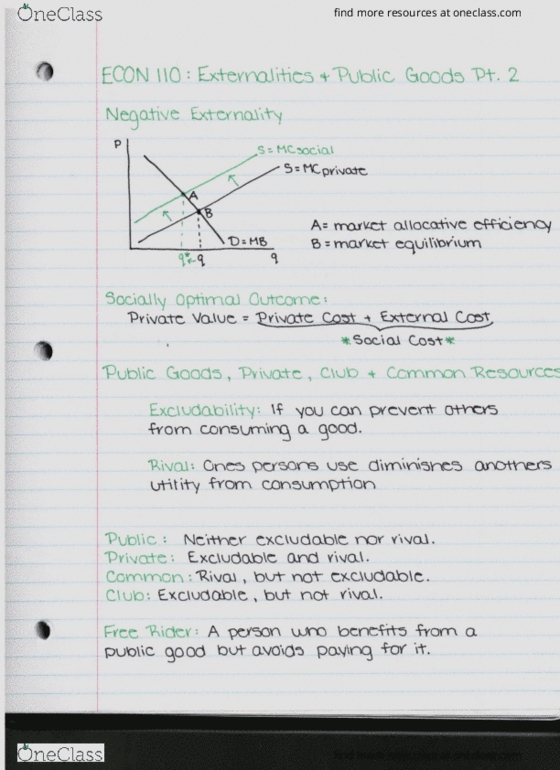 OneClass
find more resources at oneclass.com
ECON 110: Externalities + Public Goods Pt. 2
Negative Externality
P
S = MCsocial
S = MCprivate
A
B
D = MB
q* q
q
A = market allocative efficiency
B = market equilibrium
Socially Optimal Outcome:
Private Value = Private Cost + External Cost
*Social Cost*
Public Goods, Private, Club + Common Resources
Excludability: If you can prevent others
from consuming a good.
Rival: Ones persons use diminishes anothers
utility from consumption
Public: Neither excludable nor rival.
Private: Excludable and rival.
Common: Rival, but not excludable.
Club: Excludable, but not rival.
Free Rider: A person who benefits from a
public good but avoids paying for it.
OneClass
find more resources at oneclass.com